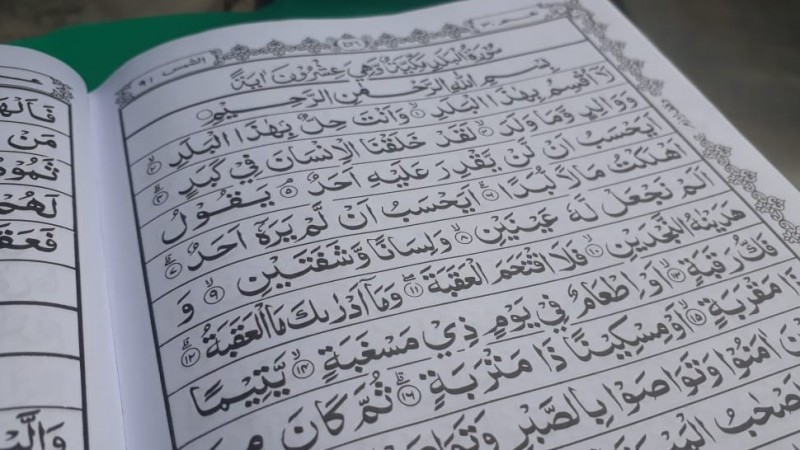 الشمس ٩١
سُوْرَةُ الْبَلَدِ مَكِّيَّةٌ وَّهِيَ عِشْرُوْنَ اٰيَةً
بِسْمِ اللّٰهِ الرَّحْمٰنِ الرَّحِيْمِ
لَآ اُقْسِمُ بِهٰذَا الْبَلَدِ ۙ﴿١﴾ وَاَنْتَ حِلٌّۢ بِهٰذَا الْبَلَدِ ۙ﴿٢﴾
وَوَالِدٍ وَّمَا وَلَدَ ۙ﴿٣﴾ لَقَدْ خَلَقْنَا الْاِنْسَانَ فِيْ كَبَدٍ ۗ﴿٤﴾
اَيَحْسَبُ اَنْ لَّنْ يَّقْدِرَ عَلَيْهِ اَحَدٌ ۘ﴿٥﴾ يَقُوْلُ
اَهْلَكْتُ مَالًا لُّبَدًا ۗ﴿٦﴾ اَيَحْسَبُ اَنْ لَّمْ يَرَهٗٓ اَحَدٌ ۗ﴿٧﴾
اَلَمْ نَجْعَلْ لَّهٗ عَيْنَيْنِ ۙ﴿٨﴾ وَلِسَانًا وَّشَفَتَيْنِ ۙ﴿٩﴾ وَ
هَدَيْنٰهُ النَّجْدَيْنِ ۚ﴿١٠﴾ فَلَا اقْتَحَمَ الْعَقَبَةَ ۖ﴿١١﴾ وَمَآ اَدْرٰىكَ مَا الْعَقَبَةُ ۗ﴿١٢﴾
فَكُّ رَقَبَةٍ ۙ﴿١٣﴾ اَوْ اِطْعَامٌ فِيْ يَوْمٍ ذِيْ مَسْغَبَةٍ ۙ﴿١٤﴾ يَّتِيْمًا
ذَا مَقْرَبَةٍ ۙ﴿١٥﴾ اَوْ مِسْكِيْنًا ذَا مَتْرَبَةٍ ۗ﴿١٦﴾ ثُمَّ كَانَ مِنَ
اٰمَنُوْا وَتَوَاصَوْا بِالصَّبْرِ وَتَوَاصَوْا
اَصْحٰبُ
مَنْ
لَهُمْ